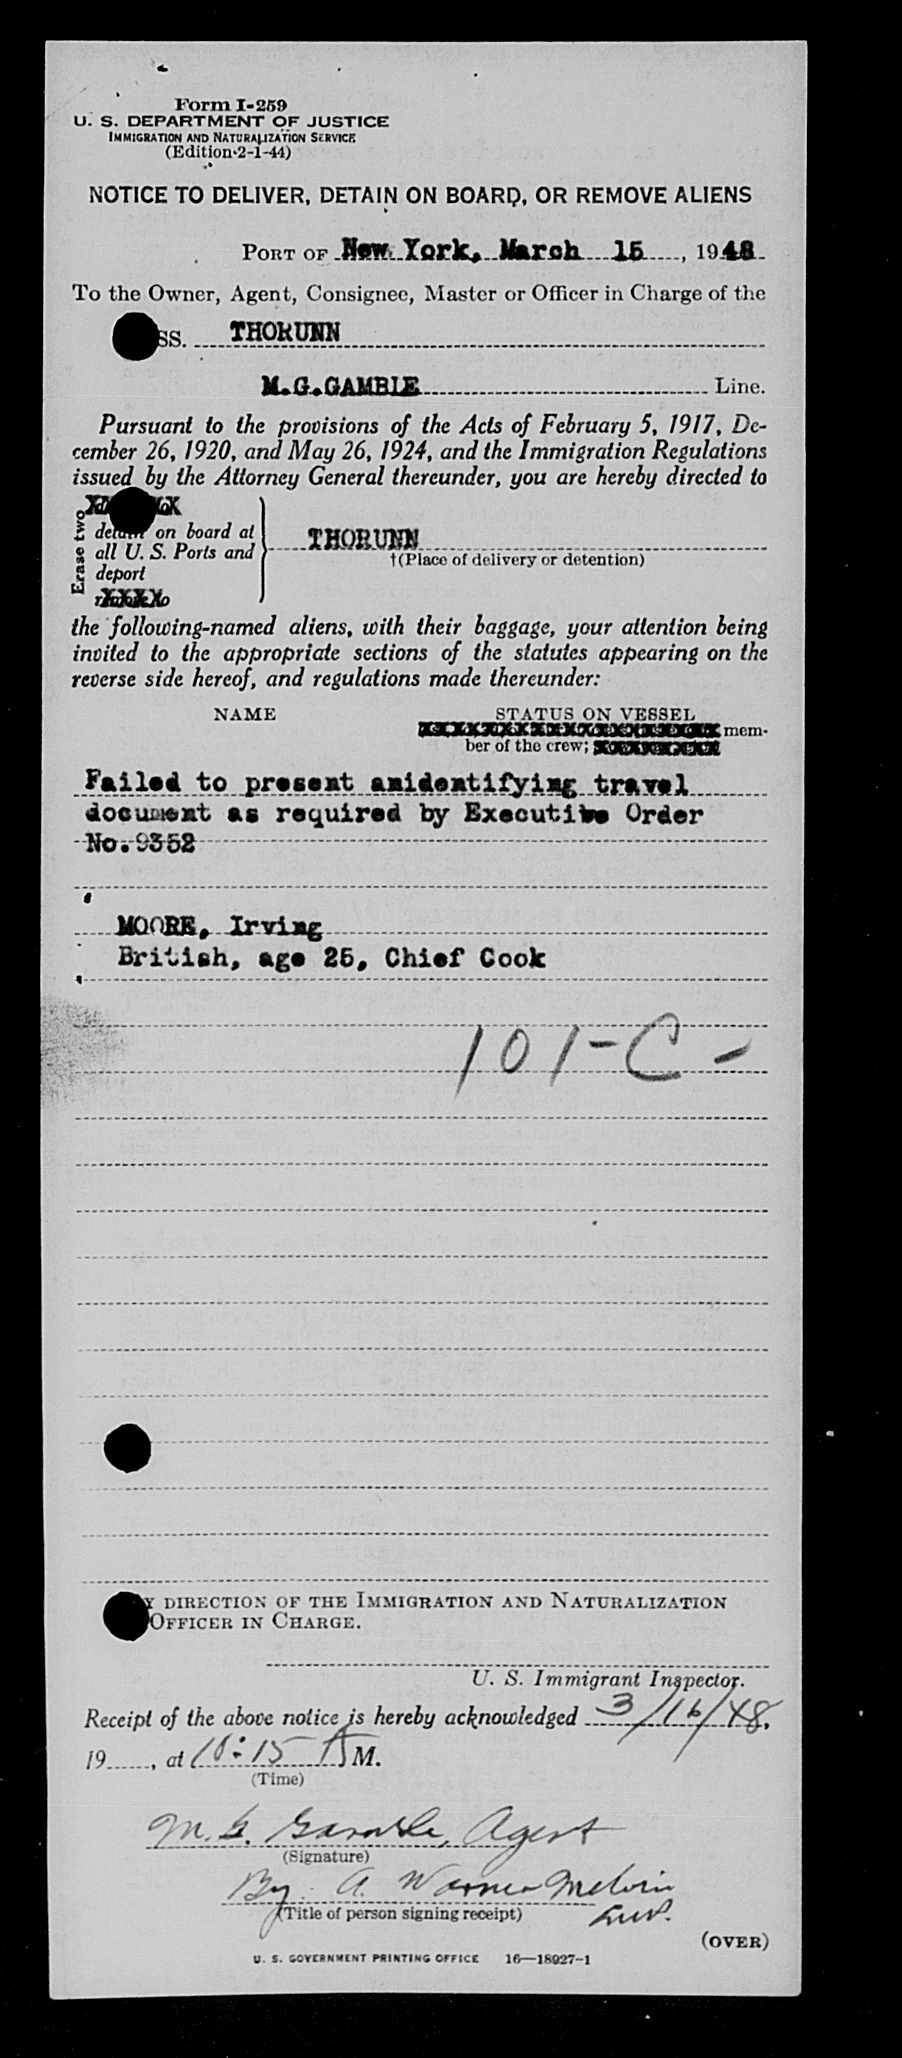 Form I-259
U. S. DEPARTMENT OF JUSTICE
IMMIGRATION AND NATURALIZATION SERVICE
(Edition 2-1-44)
NOTICE TO DELIVER, DETAIN ON BOARD, OR REMOVE ALIENS
PORT OF New York, March 15, 1948
To the Owner, Agent, Consignee, Master or Officer in Charge of the
SS. THORUNN
M.G.GAMBLE Line.
Pursuant to the provisions of the Acts of February 5, 1917, De-
cember 26, 1920, and May 26, 1924, and the Immigration Regulations
issued by the Attorney General thereunder, you are hereby directed to
Erase two
detain on board at
all U. S. Ports and
deport
THORUNN
†(Place of delivery or detention)
the following-named aliens, with their baggage, your attention being
invited to the appropriate sections of the statutes appearing on the
reverse side hereof, and regulations made thereunder:
NAME STATUS ON VESSEL
XXXXXXXXXXXXXXXXXXXXX mem-
ber of the crew; XXXXXXXXX
Failed to present anidentifying travel
document as required by Executive Order
No.9352
MOORE, Irving
British, age 25, Chief Cook
101-C-
Y DIRECTION OF THE IMMIGRATION AND NATURALIZATION
OFFICER IN CHARGE.
U. S. Immigrant Inspector.
Receipt of the above notice is hereby acknowledged 3/16/48,
19....., at 10:15 A M.
(Time)
M. G. Gamble, Agent
(Signature)
By: A. Warner Melvin
(Title of person signing receipt)
(OVER)
U. S. GOVERNMENT PRINTING OFFICE 16—18927-1